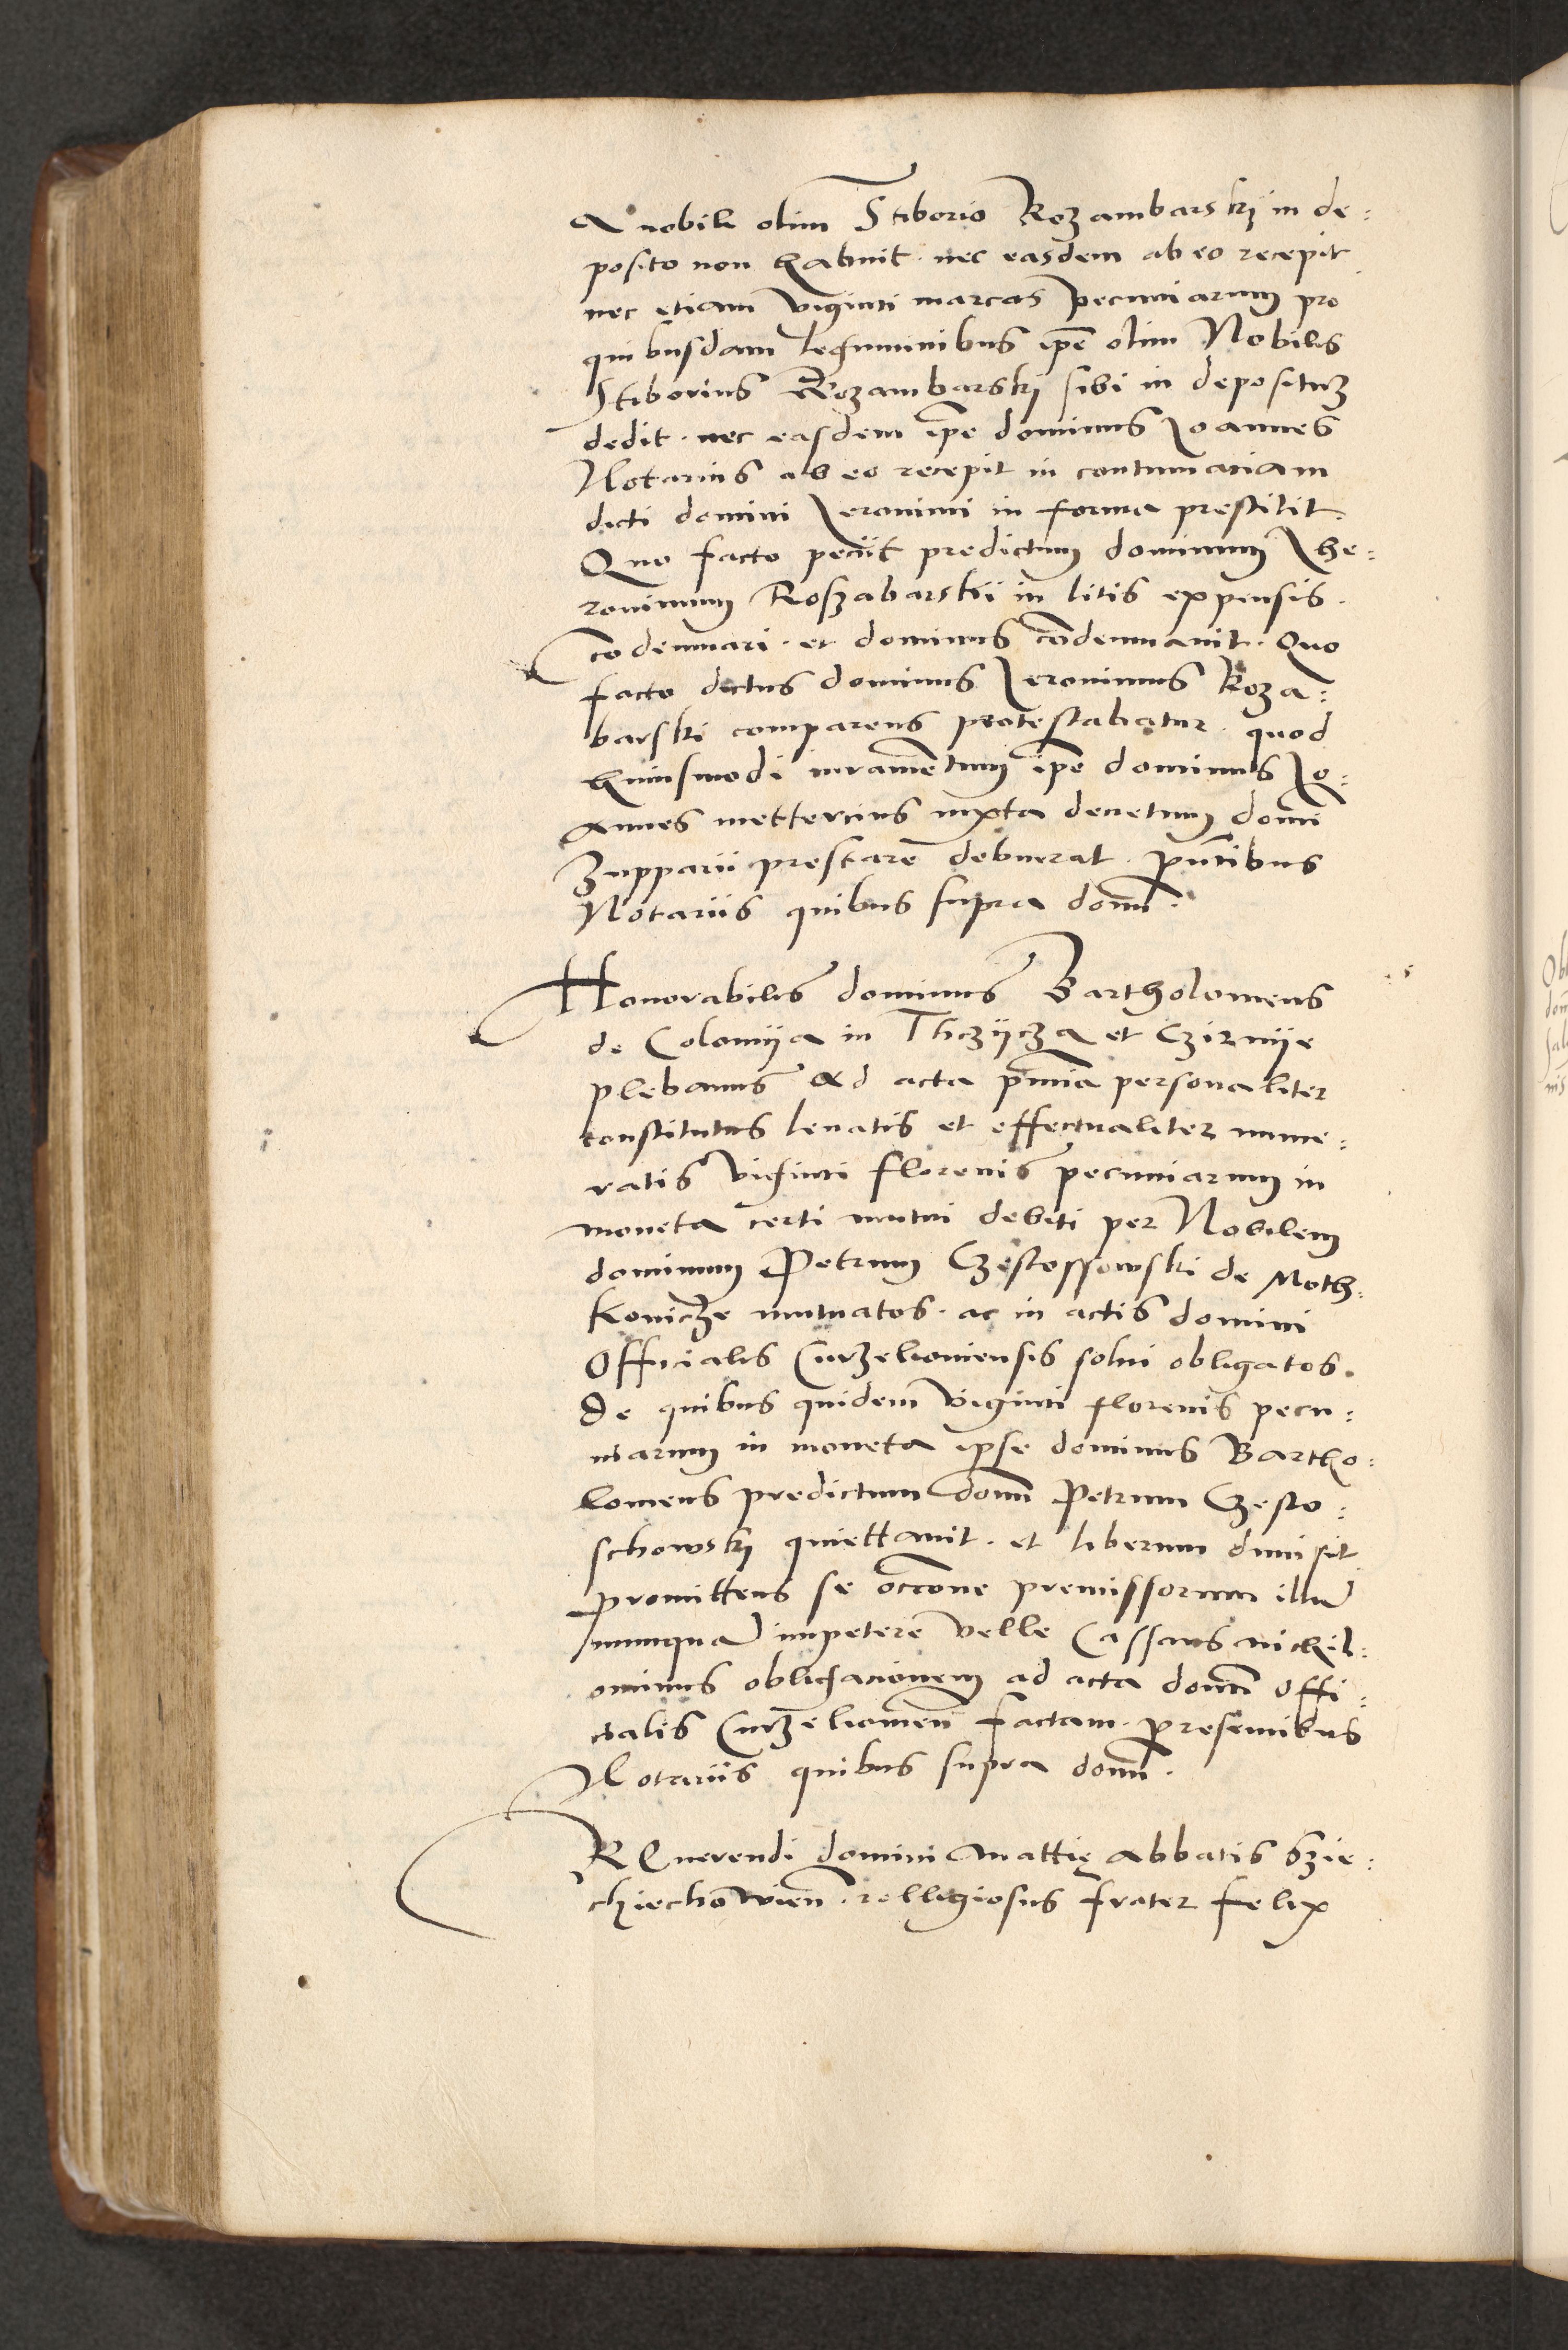 A nobili olim Stiborio Rozambarskÿ in de:
posito non habuit. nec easdem ab eo recepit
nec etiam viginti marcas pecuniarum pro
quibusdam leguminibus ipe olim Nobilis
Stiborius Rozambarskÿ sibi in depositum
dedit. nec easdem ipe dominus Ioannes
Notarius ab eo recepit in contumatiam
dicti domini Ieronimi in forma prestitit.
Quo facto peciit predictum dominum Ihe:
ronimum Roszabarskii in litis expensis.
codemnari. et dominus condemnavit. Quo
facto dictus dominus Ieronimus Roza:
barski comparens protestabatur. quod
huiusmodi iuramentum ipe dominus Io:
annes mettercius iuxta decretum domi
Zupparii prestare debuerat. pntibus
Notariis quibus supra domi.
Honorabilis dominus Bartholomeus
de Colomÿa in Thczÿcza et Czirnÿe
plebanus Ad acta pntia personaliter
constitutus levatis et effectualiter nume:
ratis viginti florenis pecuniarum in
moneta certi mutui debiti per Nobilem
dominum Petrum Czestossowski de Moth.
konicze mutuatos. ac in actis domini
Officialis Curzeloviensis solui obligatos.
De quibus quidem viginti florenis pecu:
niarum in moneta ipse dominus Bartho:
lomeus predictum dom Petrum Czesto:
schowskÿ quiettavit. et liberum dimisit
promittens se occone premissorum illum
nunquam impetere velle Cassans nichil:
ominus obligacionem ad acta domi Offi:
cialis Curzelovien factam. presentibus
Notariis quibus supra domi.
REverendi domini Mattię Abbatis Szie:
chiechowien. relligiosus frater Felix